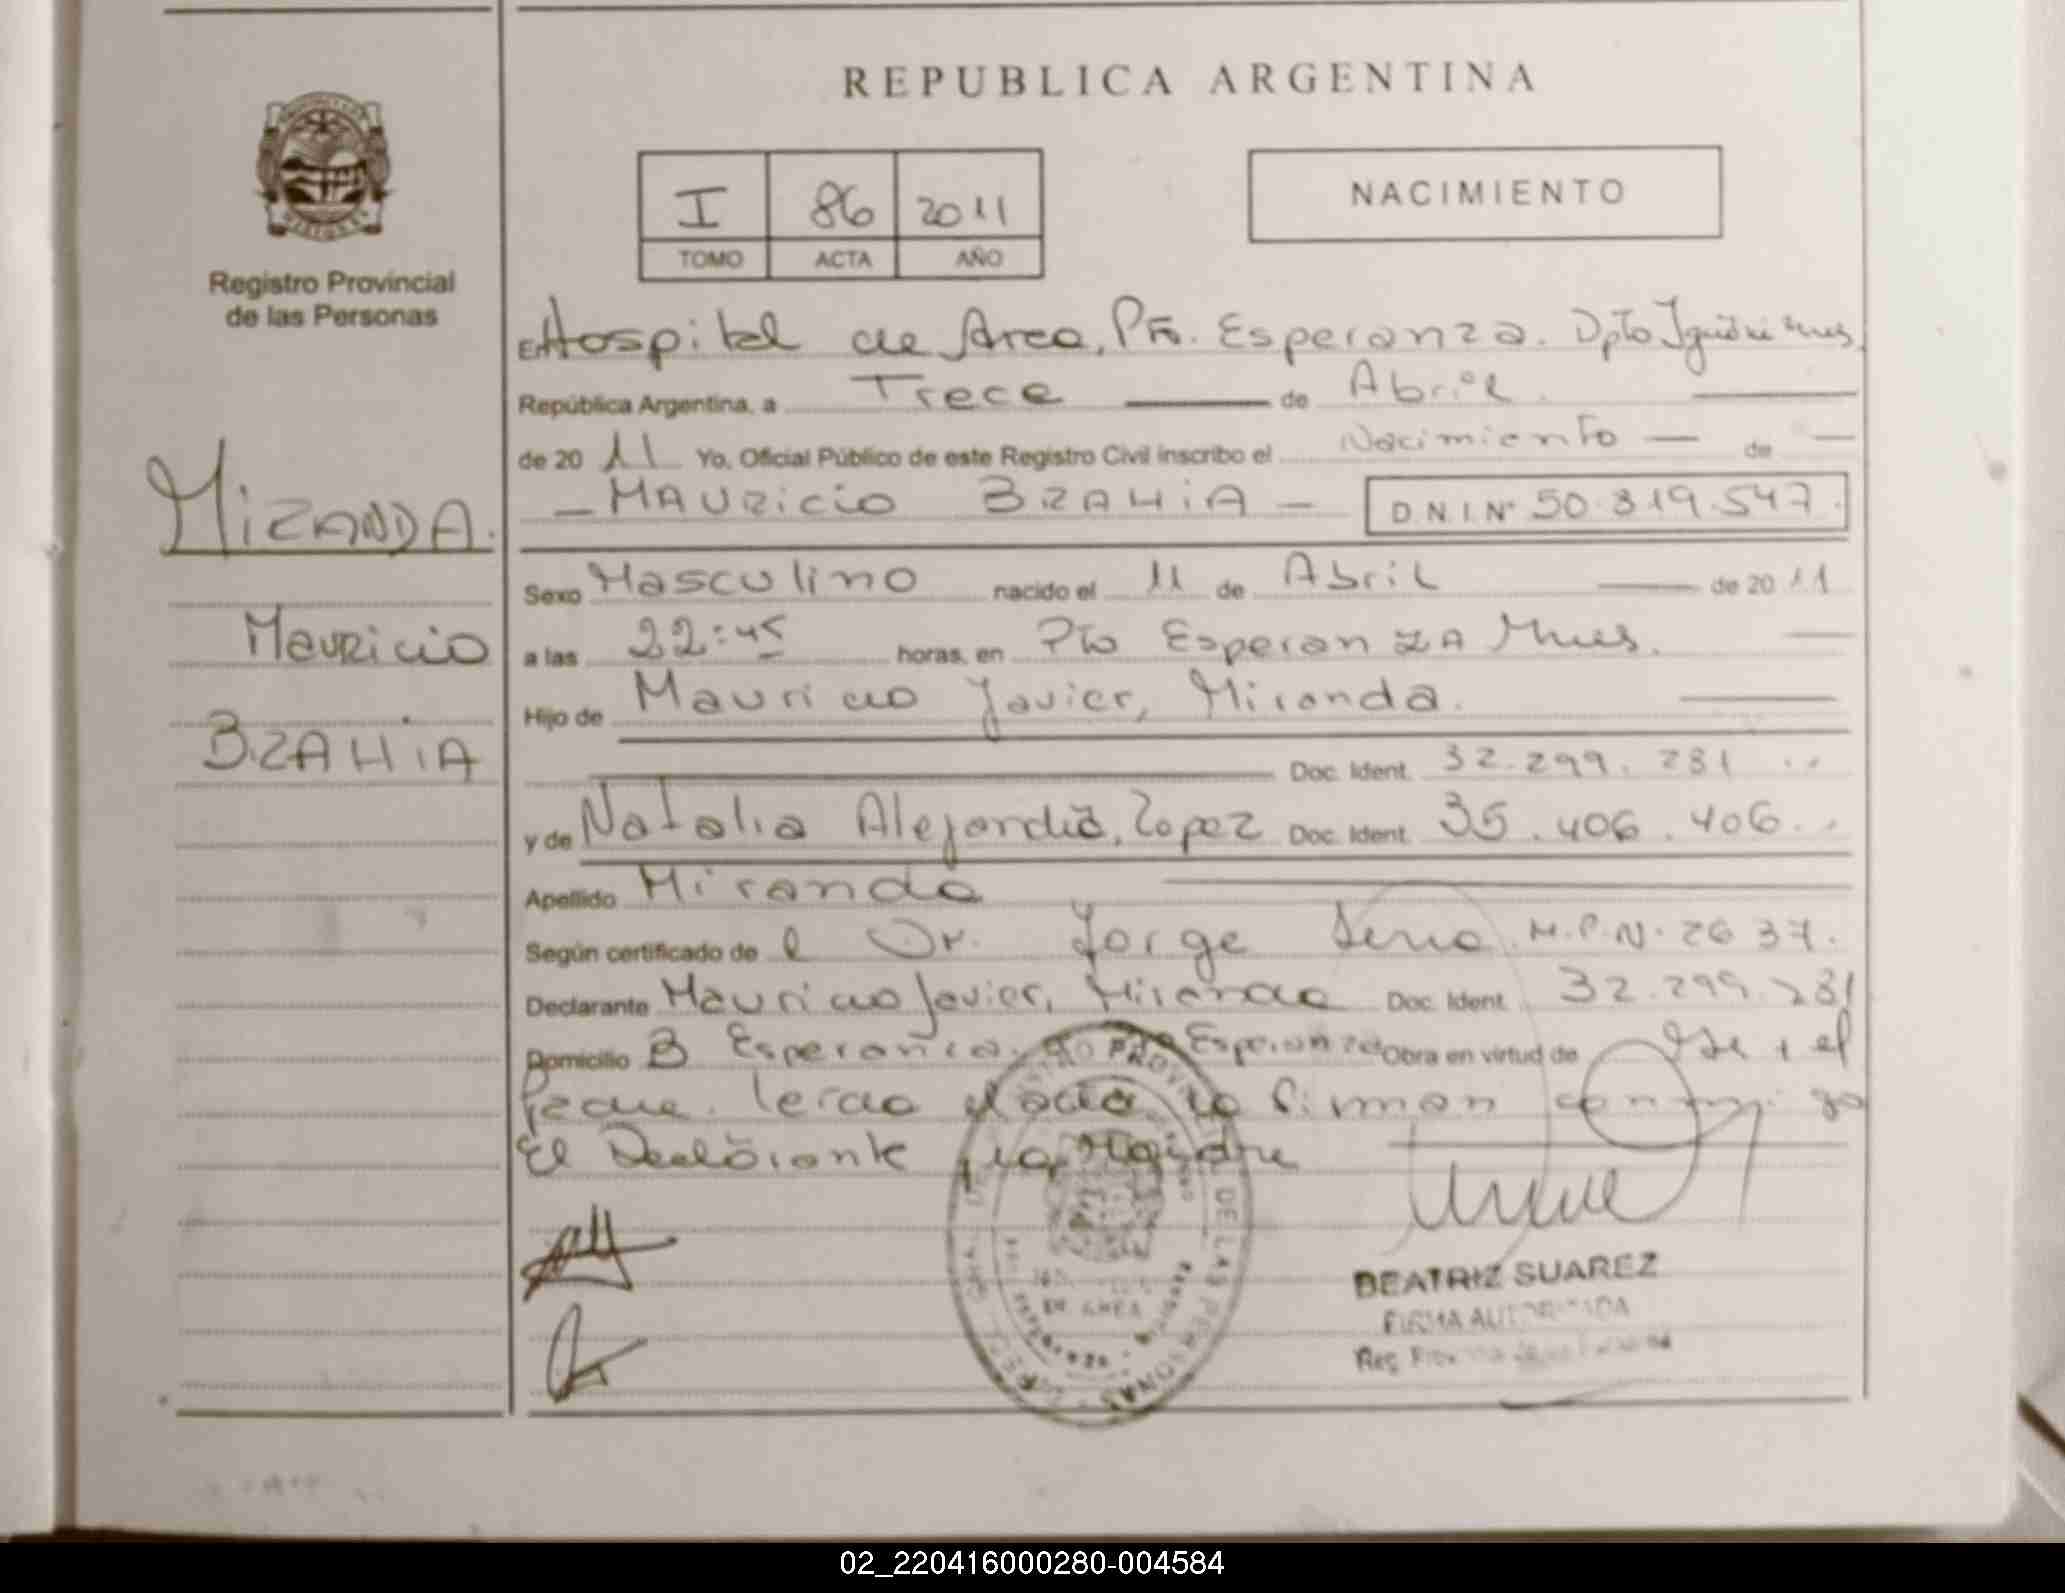 REPUBLICA ARGENTINA
I 86 2011
TOMO ACTA AÑO
NACIMIENTO
Registro Provincial
de las Personas
MIRANDA.
Mauricio
BRAHIA
En Hospital de Area, Pto. Esperanza. Dpto Iguazú Mnes,
República Argentina, a Trece de Abril.
de 20 11 Yo, Oficial Público de este Registro Civil inscribo el Nacimiento de
MAURICIO BRAHIA D.N.I. N° 50.319.547.
Sexo Masculino nacido el 11 de Abril de 20 11
a las 22:45 horas, en Pto Esperanza Mnes.
Hijo de Mauricio Javier, Miranda.
Doc. Ident. 32.299.231
y de Natalia Alejandra, Lopez Doc. Ident. 35.406.406.
Apellido Miranda
Según certificado de el Dr. Jorge M.P.N. 2637.
Declarante Mauricio Javier, Miranda Doc. Ident. 32.299.231
Domicilio B Esperanza. Pto Esperanza Obra en virtud de
Leida el acta la firman conmigo
El Declarante y la Madre
REGISTRO PROVINCIAL DE LAS PERSONAS
BEATRIZ SUAREZ
FIRMA AUTORIZADA
02_220416000280-004584